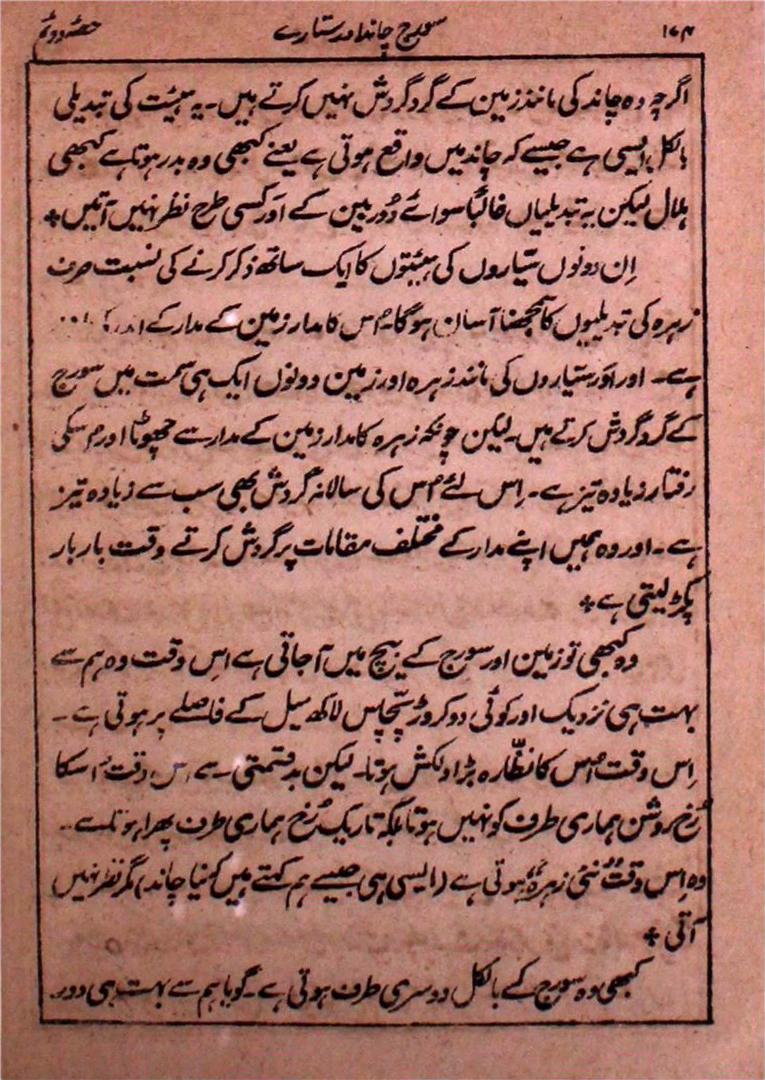 ۱۷۴ سورج چاند اور ستارے حصہ دوئم
اگرچہ وہ چاند کی مانند زمین کے گرد گردش نہیں کرتے ہیں۔ یہ ہیئت کی تبدیلی
بالکل ایسی ہے جیسے کہ چاند میں واقع ہوتی ہے یعنے کبھی وہ بدر ہوتا ہے کبھی
ہلال لیکن یہ تبدیلیاں غالباً سوائے دُوربین کے اَور کسی طرح نظر نہیں آتیں+
اِن دونوں سیّاروں کی ہیئتوں کا ایک ساتھ ذکر کرنے کی نسبت صرف
زہرہ کی تبدیلیوں کا سمجھنا آسان ہوگا۔ اُس کا مدار زمین کے مدار کے
ہے۔ اور اَور ستیاروں کی مانند زہرہ اور زمین دونوں ایک ہی سمت میں سورج
کے گرد گردش کرتے ہیں۔ لیکن چونکہ زہرہ کا مدار زمین کے مدار سے چھوٹا اور اُسکی
رفتار زیادہ تیز ہے۔ اِس لئے اُس کی سالانہ گردش بھی سب سے زیادہ تیز
ہے۔ اور وہ ہمیں اپنے مدار کے مختلف مقامات پر گردش کرتے وقت بار بار
پکڑ لیتی ہے+
وہ کبھی تو زمین اور سورج کے بیچ میں آجاتی ہے اس وقت وہ ہم سے
بہت ہی نزدیک اور کوئی دو کروڑ پچاس لاکھ میل کے فاصلے پر ہوتی ہے۔
اِس وقت اُس کا نظّارہ بڑا دلکش ہوتا۔ لیکن بدقسمتی سے اس وقت اُسکا
رُخ روشن ہماری طرف کو نہیں ہوتا بلکہ تاریک رُخ ہماری طرف پھرا ہوتا ہے۔
وہ اِس وقت "نئی زہرہ" ہوتی ہے (ایسی ہی جیسے ہم کہتے ہیں کہ نیا چاند) مگر نظر نہیں
آتی+
کبھی وہ سورج کے بالکل دوسری طرف ہوتی ہے۔ گویا ہم سے بہت ہی دور۔